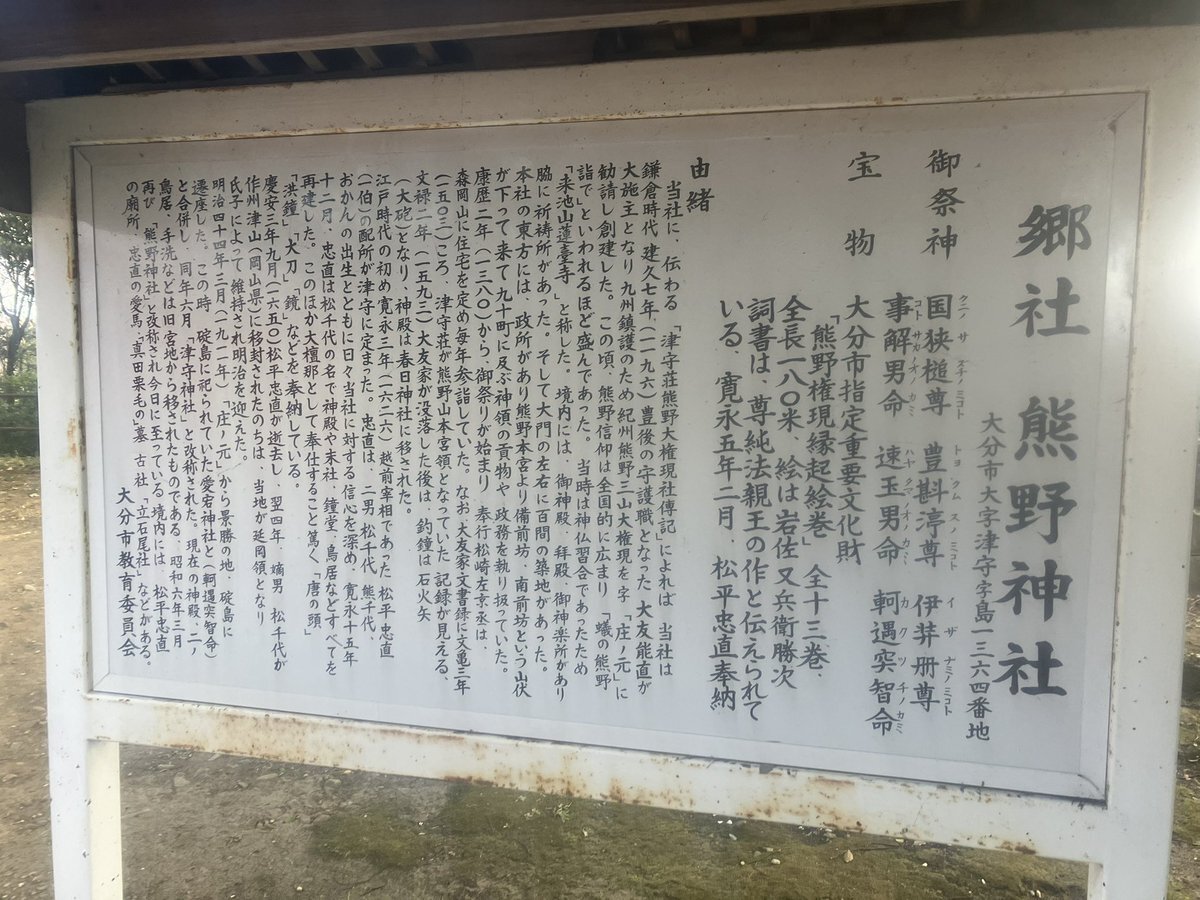 郷社 熊野神社
大分市大字津守字島一三六四番地
御祭神
国狭槌尊 豊斟渟尊 伊弉冊尊
クニノサヅチノミコト トヨクムヌノミコト イザナミノミコト
事解男命 速玉男命 軻遇突智命
コトサカノオノカミ ハヤタマノオノカミ カクツチノカミ
宝物
大分市指定重要文化財
「熊野権現縁起絵巻」全十三巻、
全長一八〇米、絵は岩佐又兵衛勝次
詞書は、尊純法親王の作と伝えられて
いる、寛永五年二月、松平忠直奉納
由緒
当社に、伝わる「津守荘熊野大権現社傳記」によれば 当社は
鎌倉時代 建久七年(一一九六)豊後の守護職となった 大友能直が
大施主となり九州鎮護のため紀州熊野三山大権現を字「庄ノ元」に
勧請し創建した。この頃、熊野信仰は全国的に広まり「蟻の熊野
詣で」といわれるほど盛んであった。当時は神仏習合であったため
「来池山蓮臺寺」と称した。境内には、御神殿、拝殿、御神楽所があり
脇に祈祷所があった。そして大門の左右に百間の築地があった。
本社の東方には、政所があり熊野本宮より備前坊、南前坊という山伏
が下って来て九十町に及ぶ神領の貢物や、政務を執り扱っていた。
康歴二年(一三八〇)から、御祭りが始まり 奉行松崎左京承は、
森岡山に住宅を定め毎年参詣していた。なお 大友家文書録に文亀三年
(一五〇三)ころ、津守荘が熊野山本宮領となっていた 記録が見える、
文禄二年(一五九二)大友家が没落した後は、釣鐘は石火矢
(大砲)となり、神殿は春日神社に移された。
江戸時代の初め寛永三年(一六二六)越前宰相であった 松平忠直
(一伯)の配所が津守に定まった。忠直は、二男 松千代 熊千代、
おかんの出生とともに日々当社に対する信心を深め、寛永十五年
十二月、忠直は松千代の名で神殿や末社、鐘堂、鳥居などすべてを
再建した。このほか大檀那として奉仕すること篤く「唐の頭」
「洪鐘」「大刀」「鏡」などを奉納している。
慶安三年九月(一六五〇)松平忠直が逝去し、翌四年、嫡男 松千代が
作州津山(岡山県)に移封されたのちは、当地が延岡領となり
氏子によって維持され明治を迎えた。
明治四十四年三月(一九一一年)「庄ノ元」から景勝の地、碇島に
遷座した。この時 碇島に祀られていた愛宕神社と(軻遇突智命)
と合併し、同年六月「津守神社」と改称された。現在の神殿、二ノ
鳥居、手洗などは旧宮地から移されたものである 昭和六年三月
再び「熊野神社」と改称され今日に至っている。境内には、松平忠直
の廟所、忠直の愛馬「真田栗毛の」墓 古社「立石尾社」などがある。
大分市教育委員会